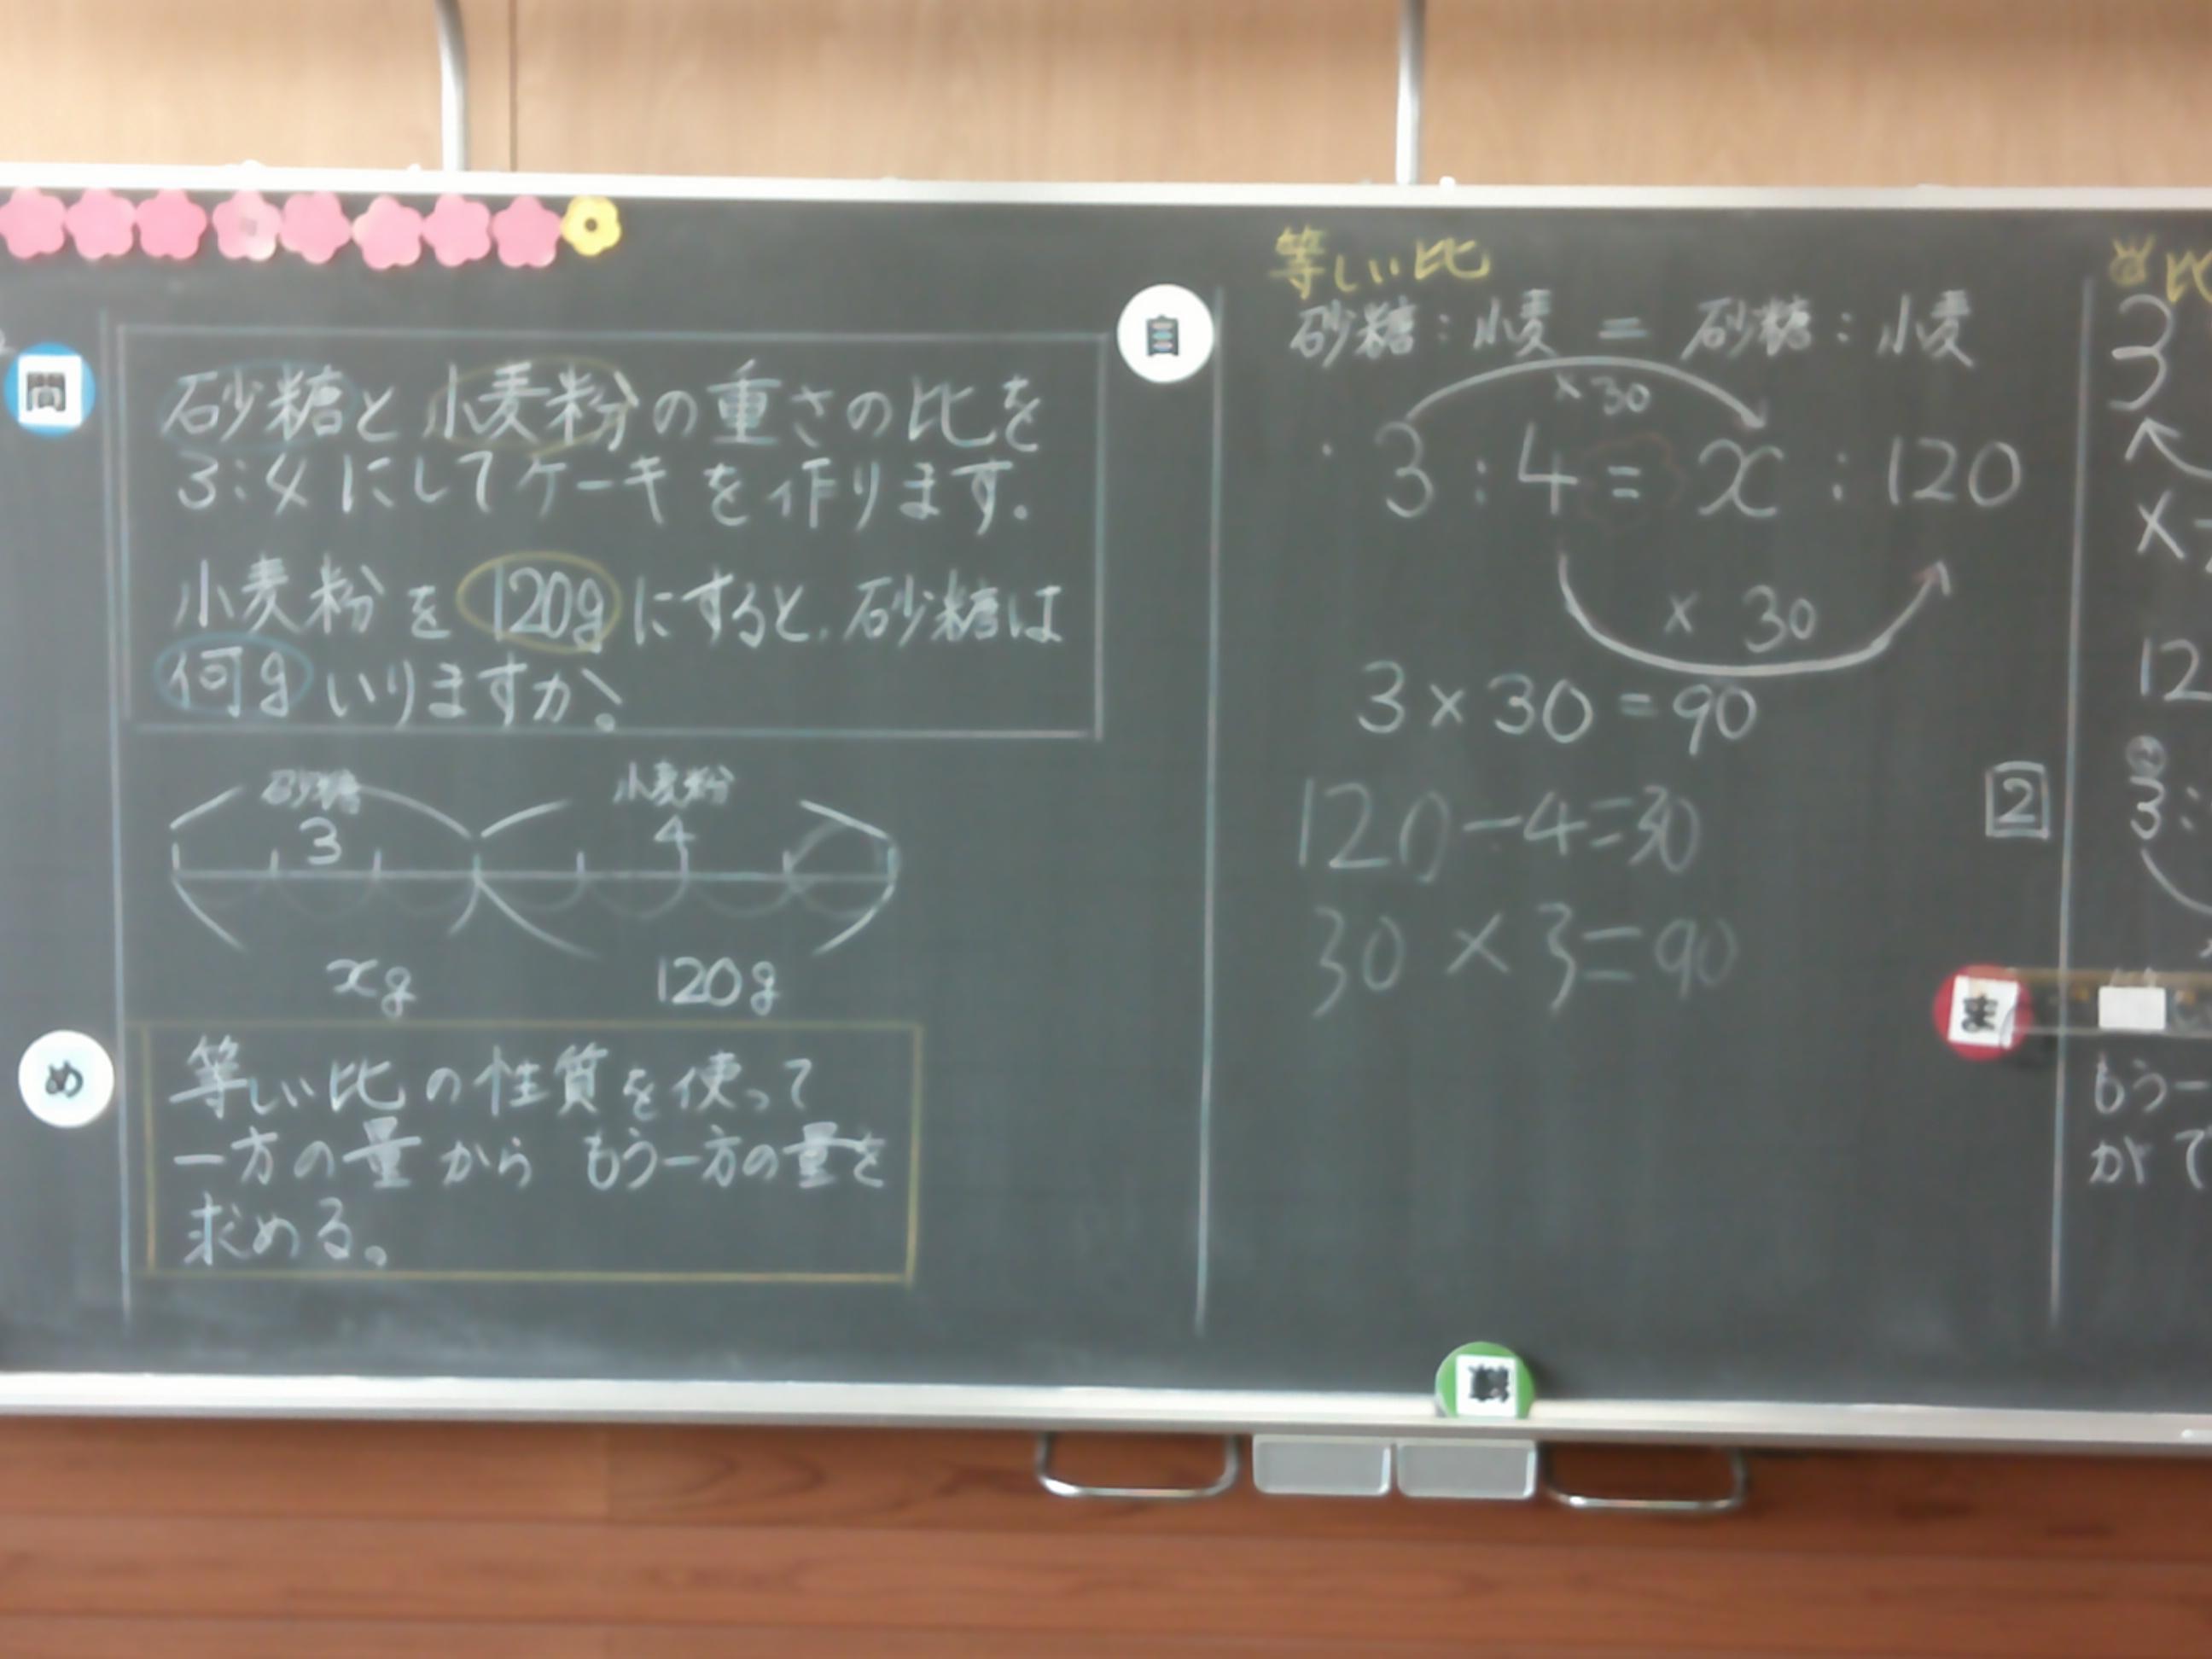 問
砂糖と小麦粉の重さの比を
3:4にしてケーキを作ります.
小麦粉を120gにすると,砂糖は
何gいりますか。
砂糖 小麦粉
3 4
xg 120g
め
等しい比の性質を使って
一方の量からもう一方の量を
求める。
自
等しい比
砂糖:小麦=砂糖:小麦
×30
・3:4=x:120
× 30
3×30=90
120÷4=30
30×3=90
比
3
x
12
2
3:
ま
もう一
がで